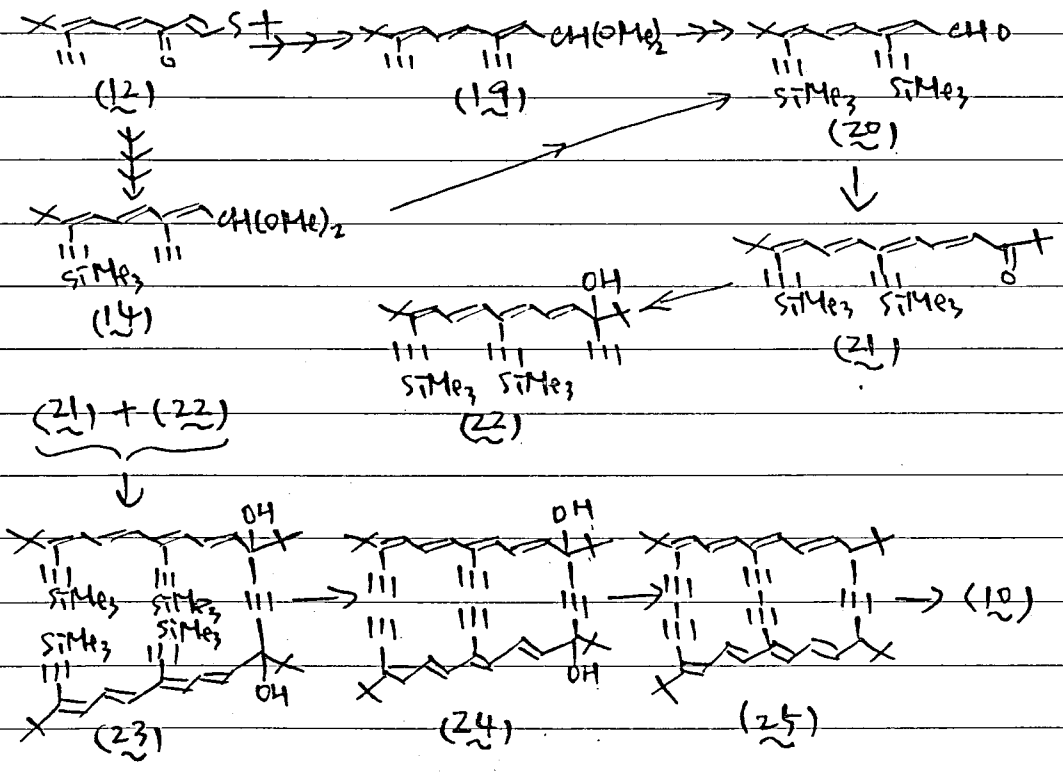 S
O
CH(OMe)2
CHO
(12)
(19)
SiMe3 SiMe3
(20)
CH(OMe)2
SiMe3
(14)
OH
O
SiMe3 SiMe3
(21)
SiMe3 SiMe3
(22)
(21) + (22)
OH
OH
SiMe3 SiMe3
SiMe3 SiMe3
(10)
OH
OH
(23)
(24)
(25)